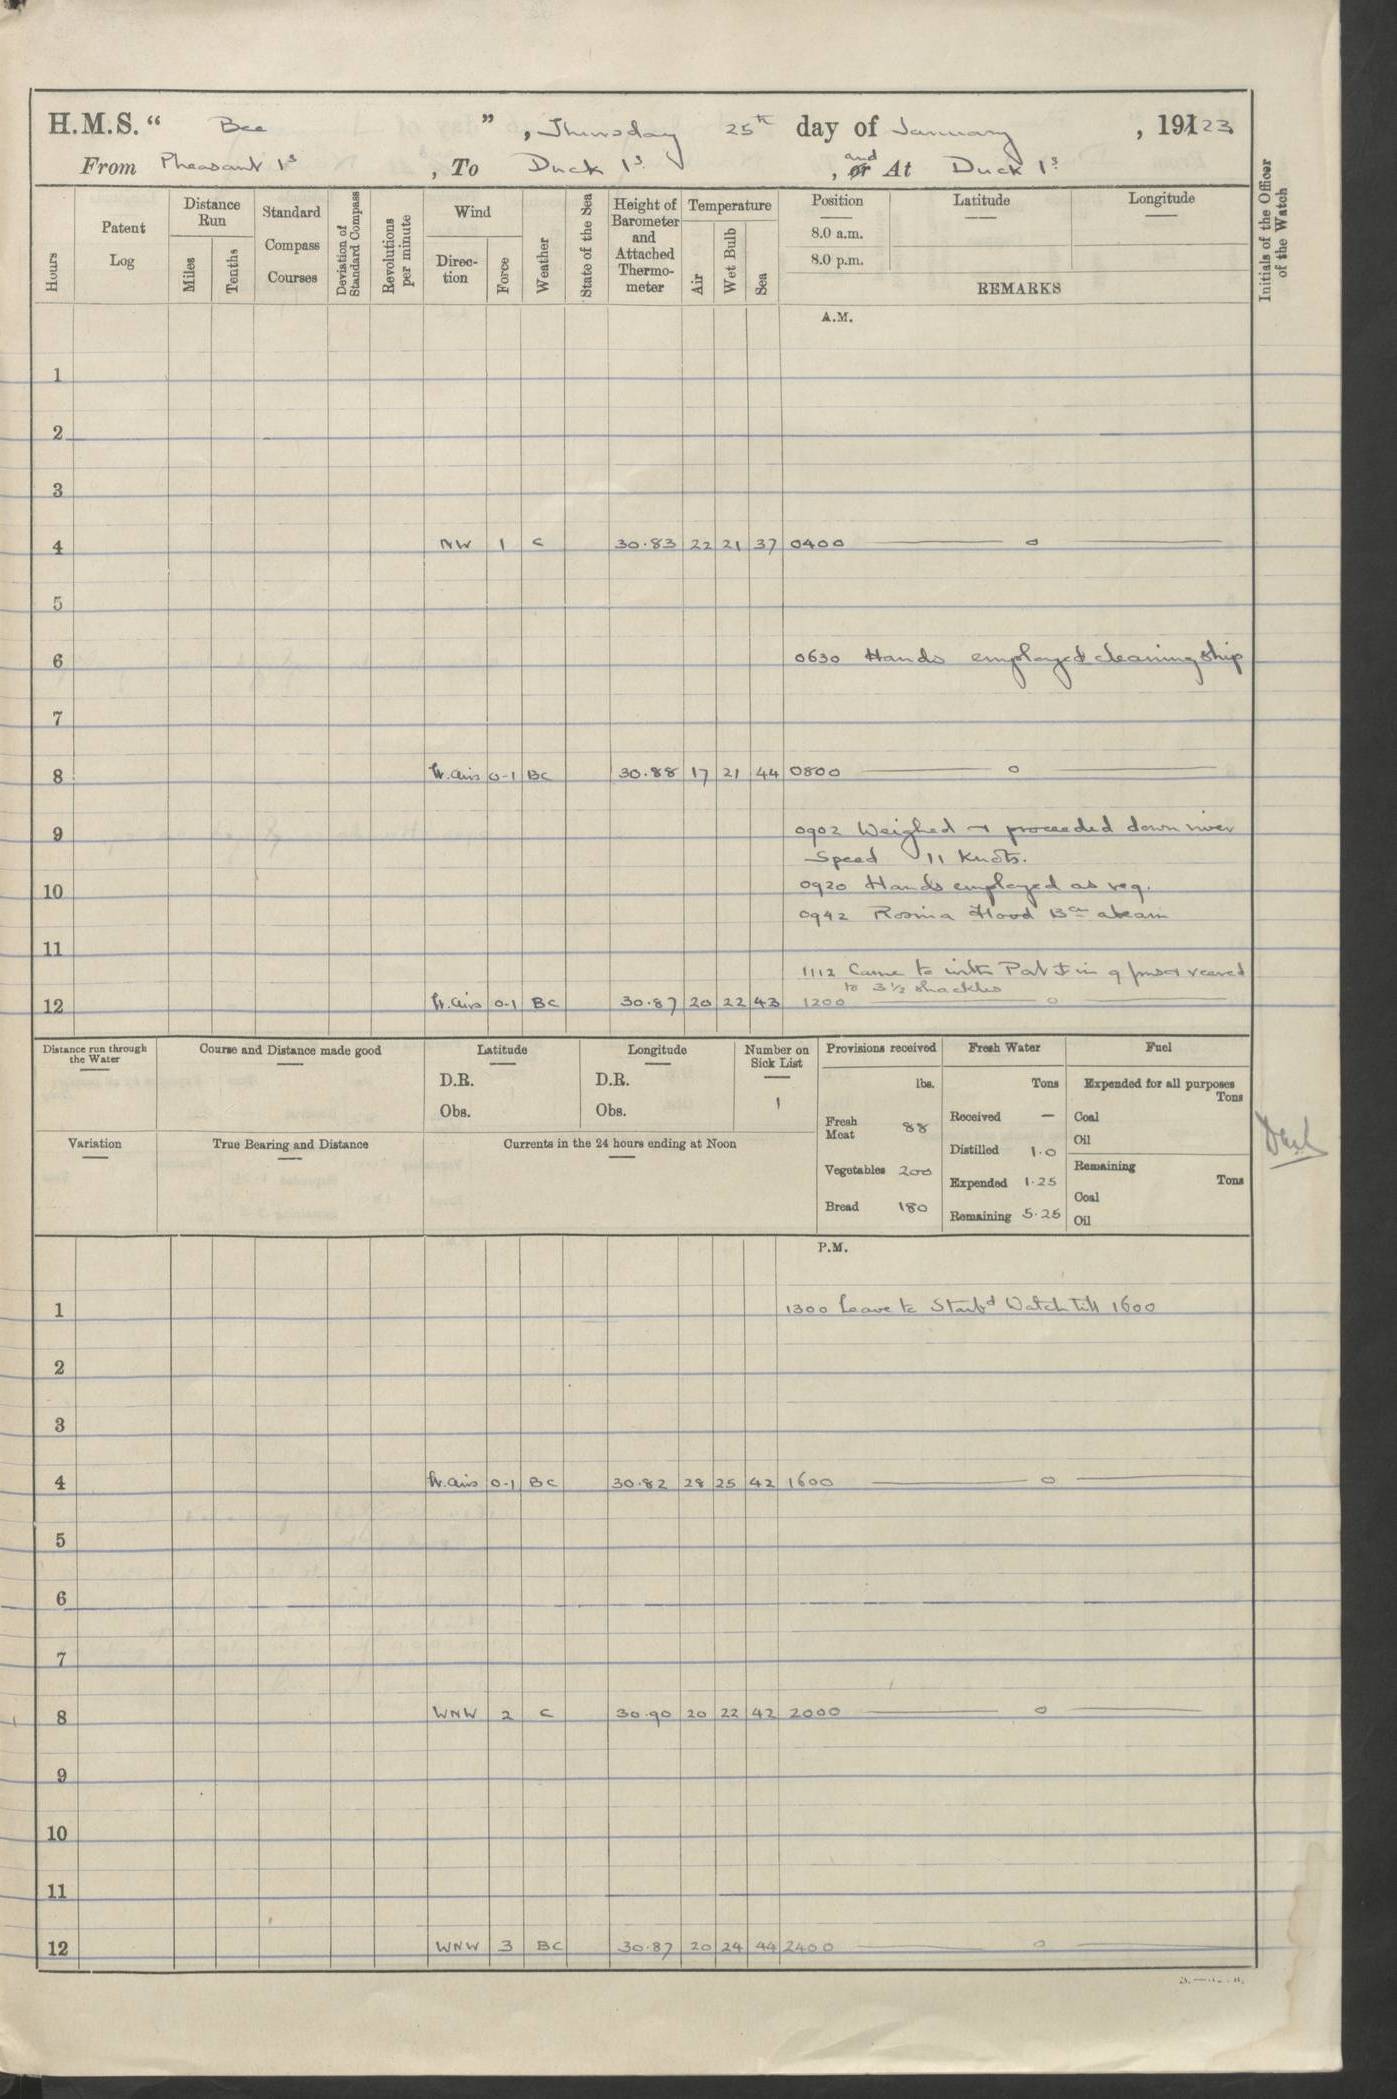 H.M.S. “ Bee ” , Thursday 25th day of January , 1923
From Pheasant Is , To Duck Is. , and At Duck Is.
Hours
Patent Log
Distance Run
Miles
Tenths
Standard Compass Courses
Deviation of Standard Compass
Revolutions per minute
Wind
Direction
Force
Weather
State of the Sea
Height of Barometer and Attached Thermometer
Temperature
Air
Wet Bulb
Sea
Position
8.0 a.m.
8.0 p.m.
Latitude
Longitude
REMARKS
Initials of the Officer of the Watch
A.M.
1
2
3
4 NW 1 C 30.83 22 21 37 0400 — o —
5
6 0630 Hands employed cleaning ship
7
8 Lt. airs 0-1 BC 30.88 17 21 44 0800 — o —
9 0902 Weighed & proceeded down river
Speed 11 Knots.
10 0920 Hands employed as req.
0942 Rosina Hood Bn abeam
11
1112 Came to with Port in 9 fms & veered
to 3½ shackles
12 Lt. airs 0-1 BC 30.87 20 22 43 1200 — o —
Distance run through the Water
Course and Distance made good
Latitude
D.R.
Obs.
Longitude
D.R.
Obs.
Number on Sick List
1
Provisions received
lbs.
Fresh Meat 88
Vegetables 200
Bread 180
Fresh Water
Tons
Received —
Distilled 1.0
Expended 1.25
Remaining 5.25
Fuel
Expended for all purposes
Tons
Coal
Oil
Remaining
Tons
Coal
Oil
Variation
True Bearing and Distance
Currents in the 24 hours ending at Noon
P.M.
1 1300 Leave to Starbd Watch till 1600
2
3
4 Lt. airs 0-1 BC 30.82 28 25 42 1600 — o —
5
6
7
8 WNW 2 C 30.90 20 22 42 2000 — o —
9
10
11
12 WNW 3 BC 30.87 20 24 44 2400 — o —